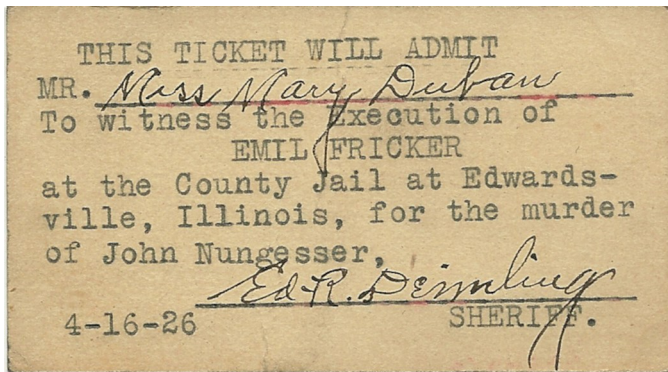 THIS TICKET WILL ADMIT
MR. Miss Mary Duban
To witness the Execution of
EMIL FRICKER
at the County Jail at Edwards-
ville, Illinois, for the murder
of John Nungesser,
Ed. R. Deimling
4-16-26 SHERIFF.